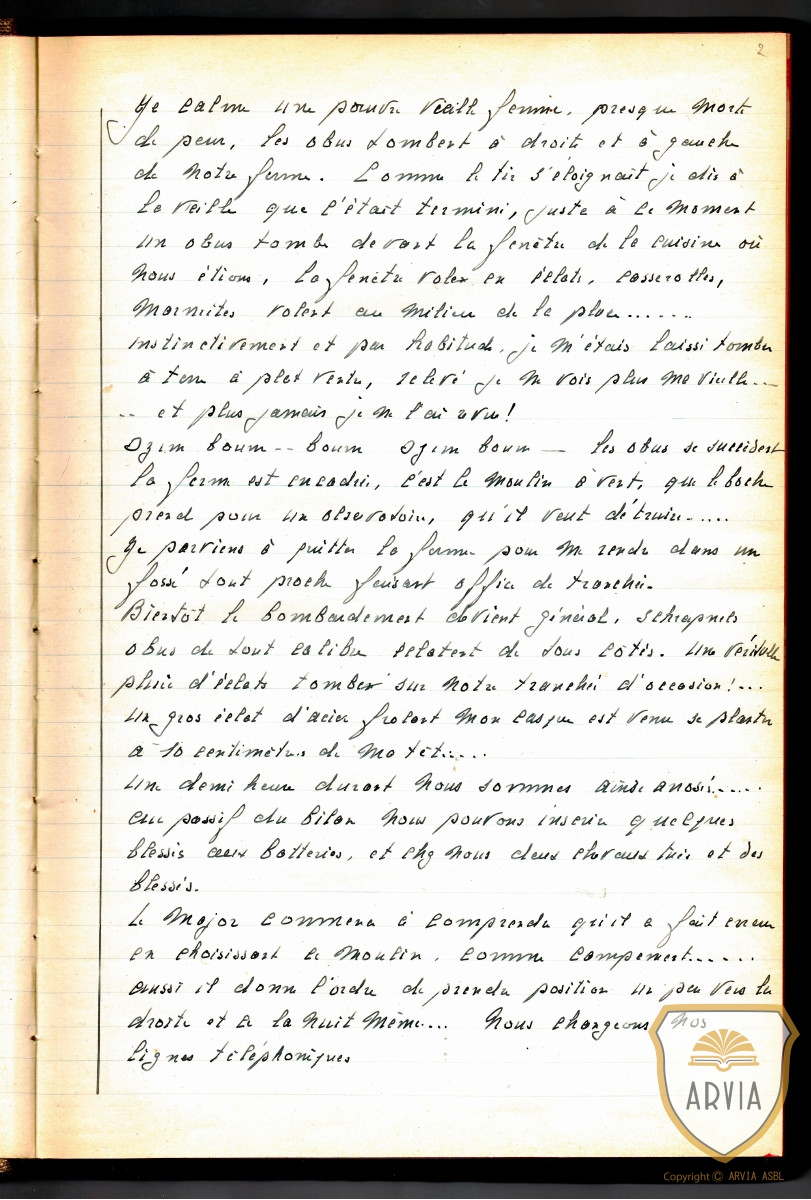 2
Je calme une pauvre vieille femme, presque morte
de peur, les obus tombent à droite et à gauche
de notre ferme. Comme le tir s'éloignait je dis à
la vieille que c'était terminé, juste à ce moment
un obus tombe devant la fenêtre de la cuisine où
nous étions, la fenêtre volex en éclats, casserolles,
marmites volent au milieu de la place.......
instinctivement et par habitude, je m'étais laissé tomber
à terre à plat ventre, relevé je ne vois plus ma vieille...
.. et plus jamais je ne l'ai revue!
Dzim boum -- boum Dzim boum — les obus se succèdent
la ferme est encadrée, c'est le moulin à vent, que le boche
prend pour un observatoire, qu'il veut détruire.....
Je parviens à quitter la ferme pour me rendre dans un
fossé tout proche faisant office de tranchée.
Bientôt le bombardement devient général, schrapnels
obus de tout calibre éclatent de tous côtés. Une véritable
pluie d'éclats tomber sur notre tranchée d'occasion!...
Un gros éclat d'acier frolant mon casque est venu se planter
à 10 centimètres de ma tête....
Une demi heure durant nous sommes ainsi arrosés.....
Au passif du bilan nous pouvons inscrire quelques
blessés aux batteries, et chez nous deux chevaux tués et des
blessés.
Le Major commence à comprendre qu'il a fait erreur
en choisissant ce moulin, comme campement......
aussi il donne l'ordre de prendre position un peu vers la
droite et ce la nuit même... Nous changeons nos
lignes téléphoniques
ARVIA
Copyright © ARVIA ASBL